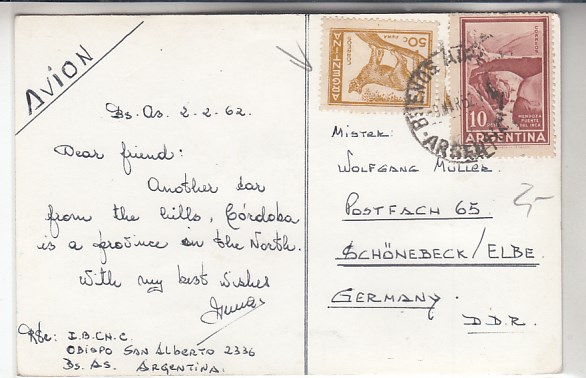 Avion
Bs. As. 2-2-62.
Dear friend:
Another
from the hills, Córdoba
is a province in the North.
With my best wishes
Rte: I.B.CH.C.
OBISPO SAN ALBERTO 2336
Bs. As. ARGENTINA.
50c PUMA
ARGENTINA
10 MENDOZA PUENTE DEL INCA
ARGENTINA
BUENOS AIRES
ARGENTINA
MISTER:
WOLFGANG MÜLLER
POSTFACH 65
SCHÖNEBECK/ELBE.
GERMANY.
D.D.R.